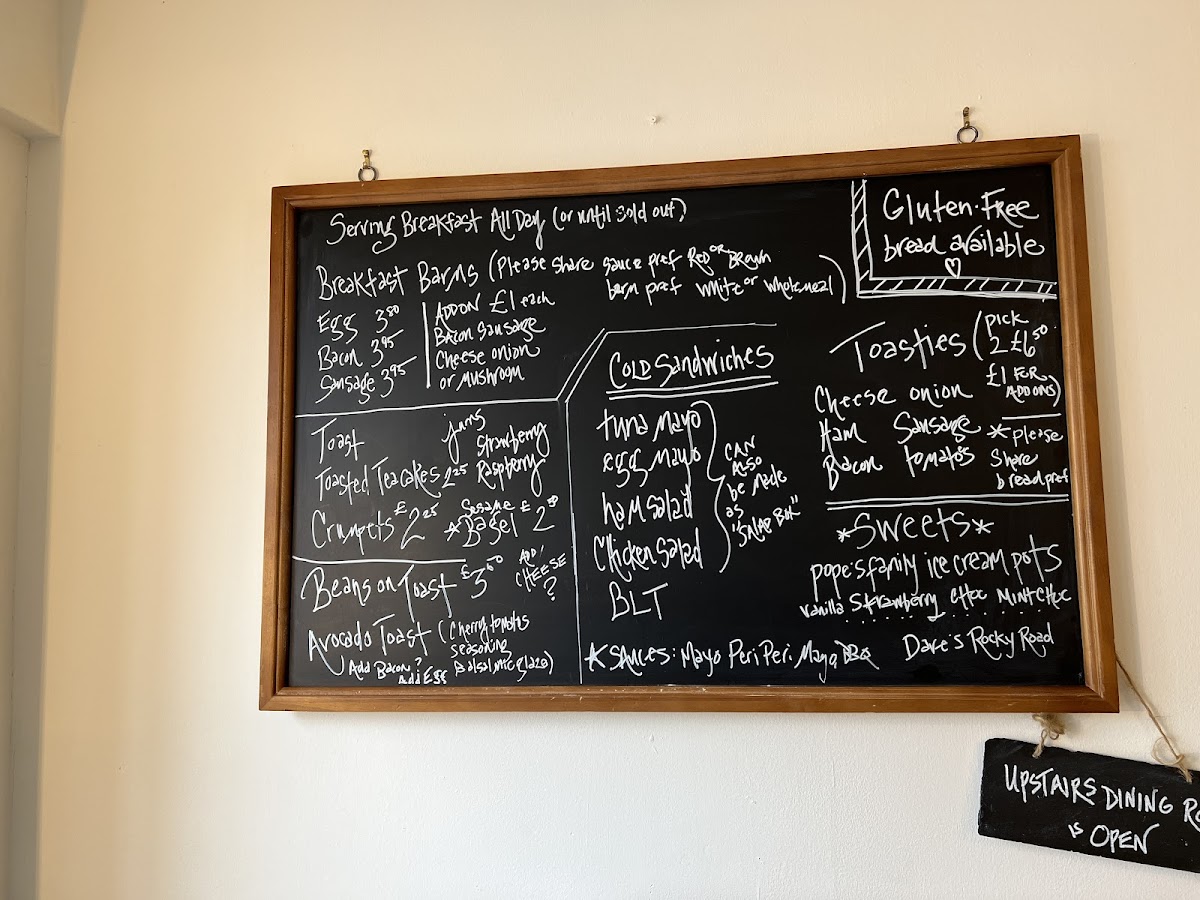 Serving Breakfast All Day (or until sold out)
Breakfast Barms (Please share sauce pref Red or Brown
barm pref white or wholemeal)
Egg 3.80
Bacon 3.95
Sausage 3.95
ADD ON £1 each
Bacon Sausage
Cheese onion
or Mushroom
Toast
Jams
Strawberry
Raspberry
Toasted Teacakes 2.25
Crumpets £2.25
*Sesame Bagel £2.50
Beans on Toast £3.60
ADD CHEESE ?
Avocado Toast (Cherry tomatoes
seasoning
Balsalmic glaze)
Add Bacon ?
Add Egg
COLD Sandwiches
tuna Mayo
egg Mayo
ham salad
Chicken Salad
BLT
CAN
ALSO
be made
as
"SALAD BOX"
*SAUCES: Mayo Peri Peri. Mayo BBQ
Gluten-Free
bread available
Toasties (pick
2 £6.50
£1 FOR
ADD ONS)
Cheese onion
Ham Sausage
Bacon tomatos
*please
Share
bread pref
*Sweets*
pope's family ice cream pots
vanilla Strawberry CHOC MINT CHOC
Dave's Rocky Road
UPSTAIRS DINING RO
is OPEN